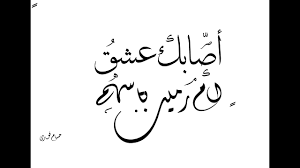 أصَابك عشقُ
ام رُميت بأسهم